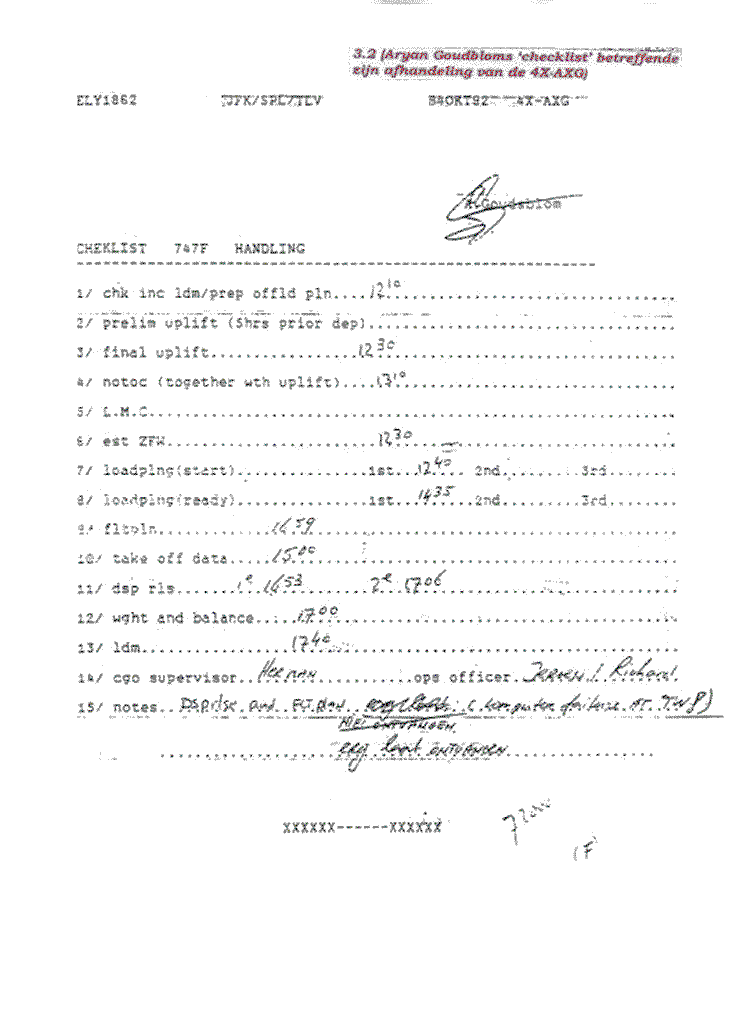 3.2 (Aryan Goudbloms 'checklist' betreffende
zijn afhandeling van de 4X-AXG)
ELY1862 JFK/SPL/TLV 04OKT92 4X-AXG
A.Goudsblom
CHEKLIST 747F HANDLING
------------------------------------------------------------
1/ chk inc ldm/prep offld pln....12 10
2/ prelim uplift (5hrs prior dep)
3/ final uplift..................12 30
4/ notoc (together wth uplift)....13 10
5/ L.M.C.
6/ est ZFW.......................12 30
7/ loadplng(start)...............1st...12 40 2nd..........3rd
8/ loadplng(ready)...............1st...14 35 2nd..........3rd
9/ fltpln..............14 59
10/ take off data.....15 00
11/ dsp rls.......1e 1653 2e 1706
12/ wght and balance.....17 00
13/ ldm................17 40
14/ cgo supervisor..Herman..............ops officer..Jeroen / Richard
15/ notes.. and (komputer failure AT TWB)
NIET ONTVANGEN.
erg laat ONTVANGEN
XXXXXX------XXXXXX
(F)